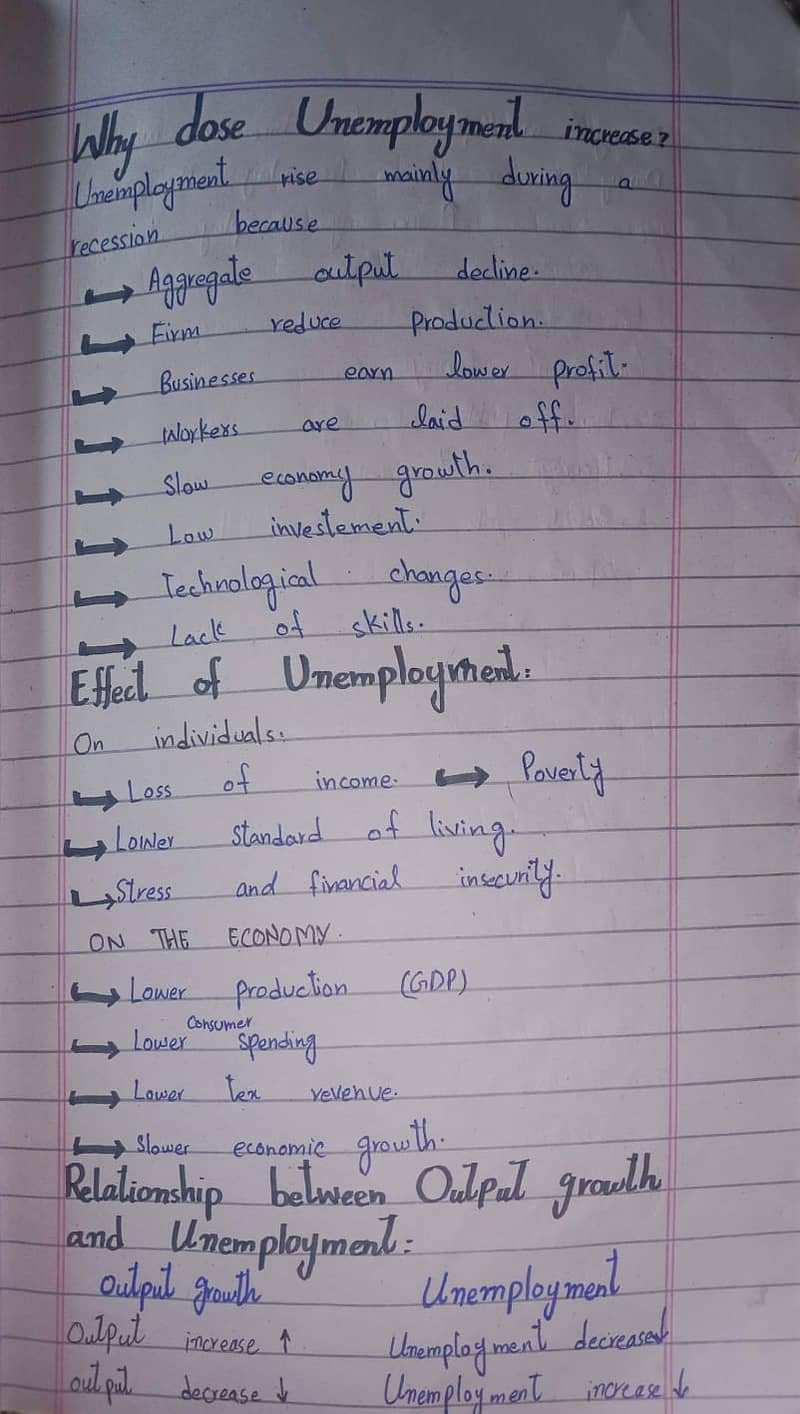 Why dose Unemployment increase?
Unemployment rise mainly during a
recession because
→ Aggregate output decline.
→ Firm reduce production.
→ Businesses earn lower profit.
→ Workers are laid off.
→ Slow economy growth.
→ Low investement.
→ Technological changes.
→ Lack of skills.
Effect of Unemployment:
On individuals:
→ Loss of income. → Poverty
→ Lower standard of living.
→ Stress and financial insecurity.
ON THE ECONOMY.
→ Lower production (GDP)
→ Lower Consumer spending
→ Lower tex revenue.
→ Slower economic growth.
Relationship between Output growth
and Unemployment:
Output growth Unemployment
Output increase ↑ Unemployment decreased
output decrease ↓ Unemployment increase ↓